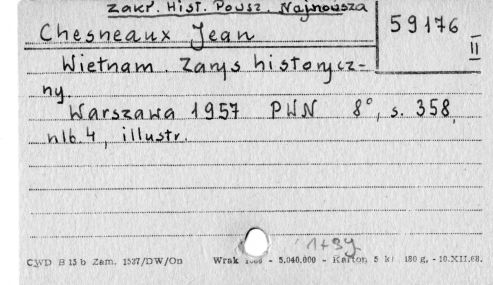 Zakł. Hist. Powsz. Najnowsza
59176
II
Chesneaux Jean
Wietnam. Zarys historycz-
ny.
Warszawa 1957 PWN 8°, s. 358,
nlb. 4, illustr.
1+39
CWD B 15 b Zam. 1537/DW/On Wrak - 5.040.000 - Karton 5 kl 180 g. - 10.XII.68.